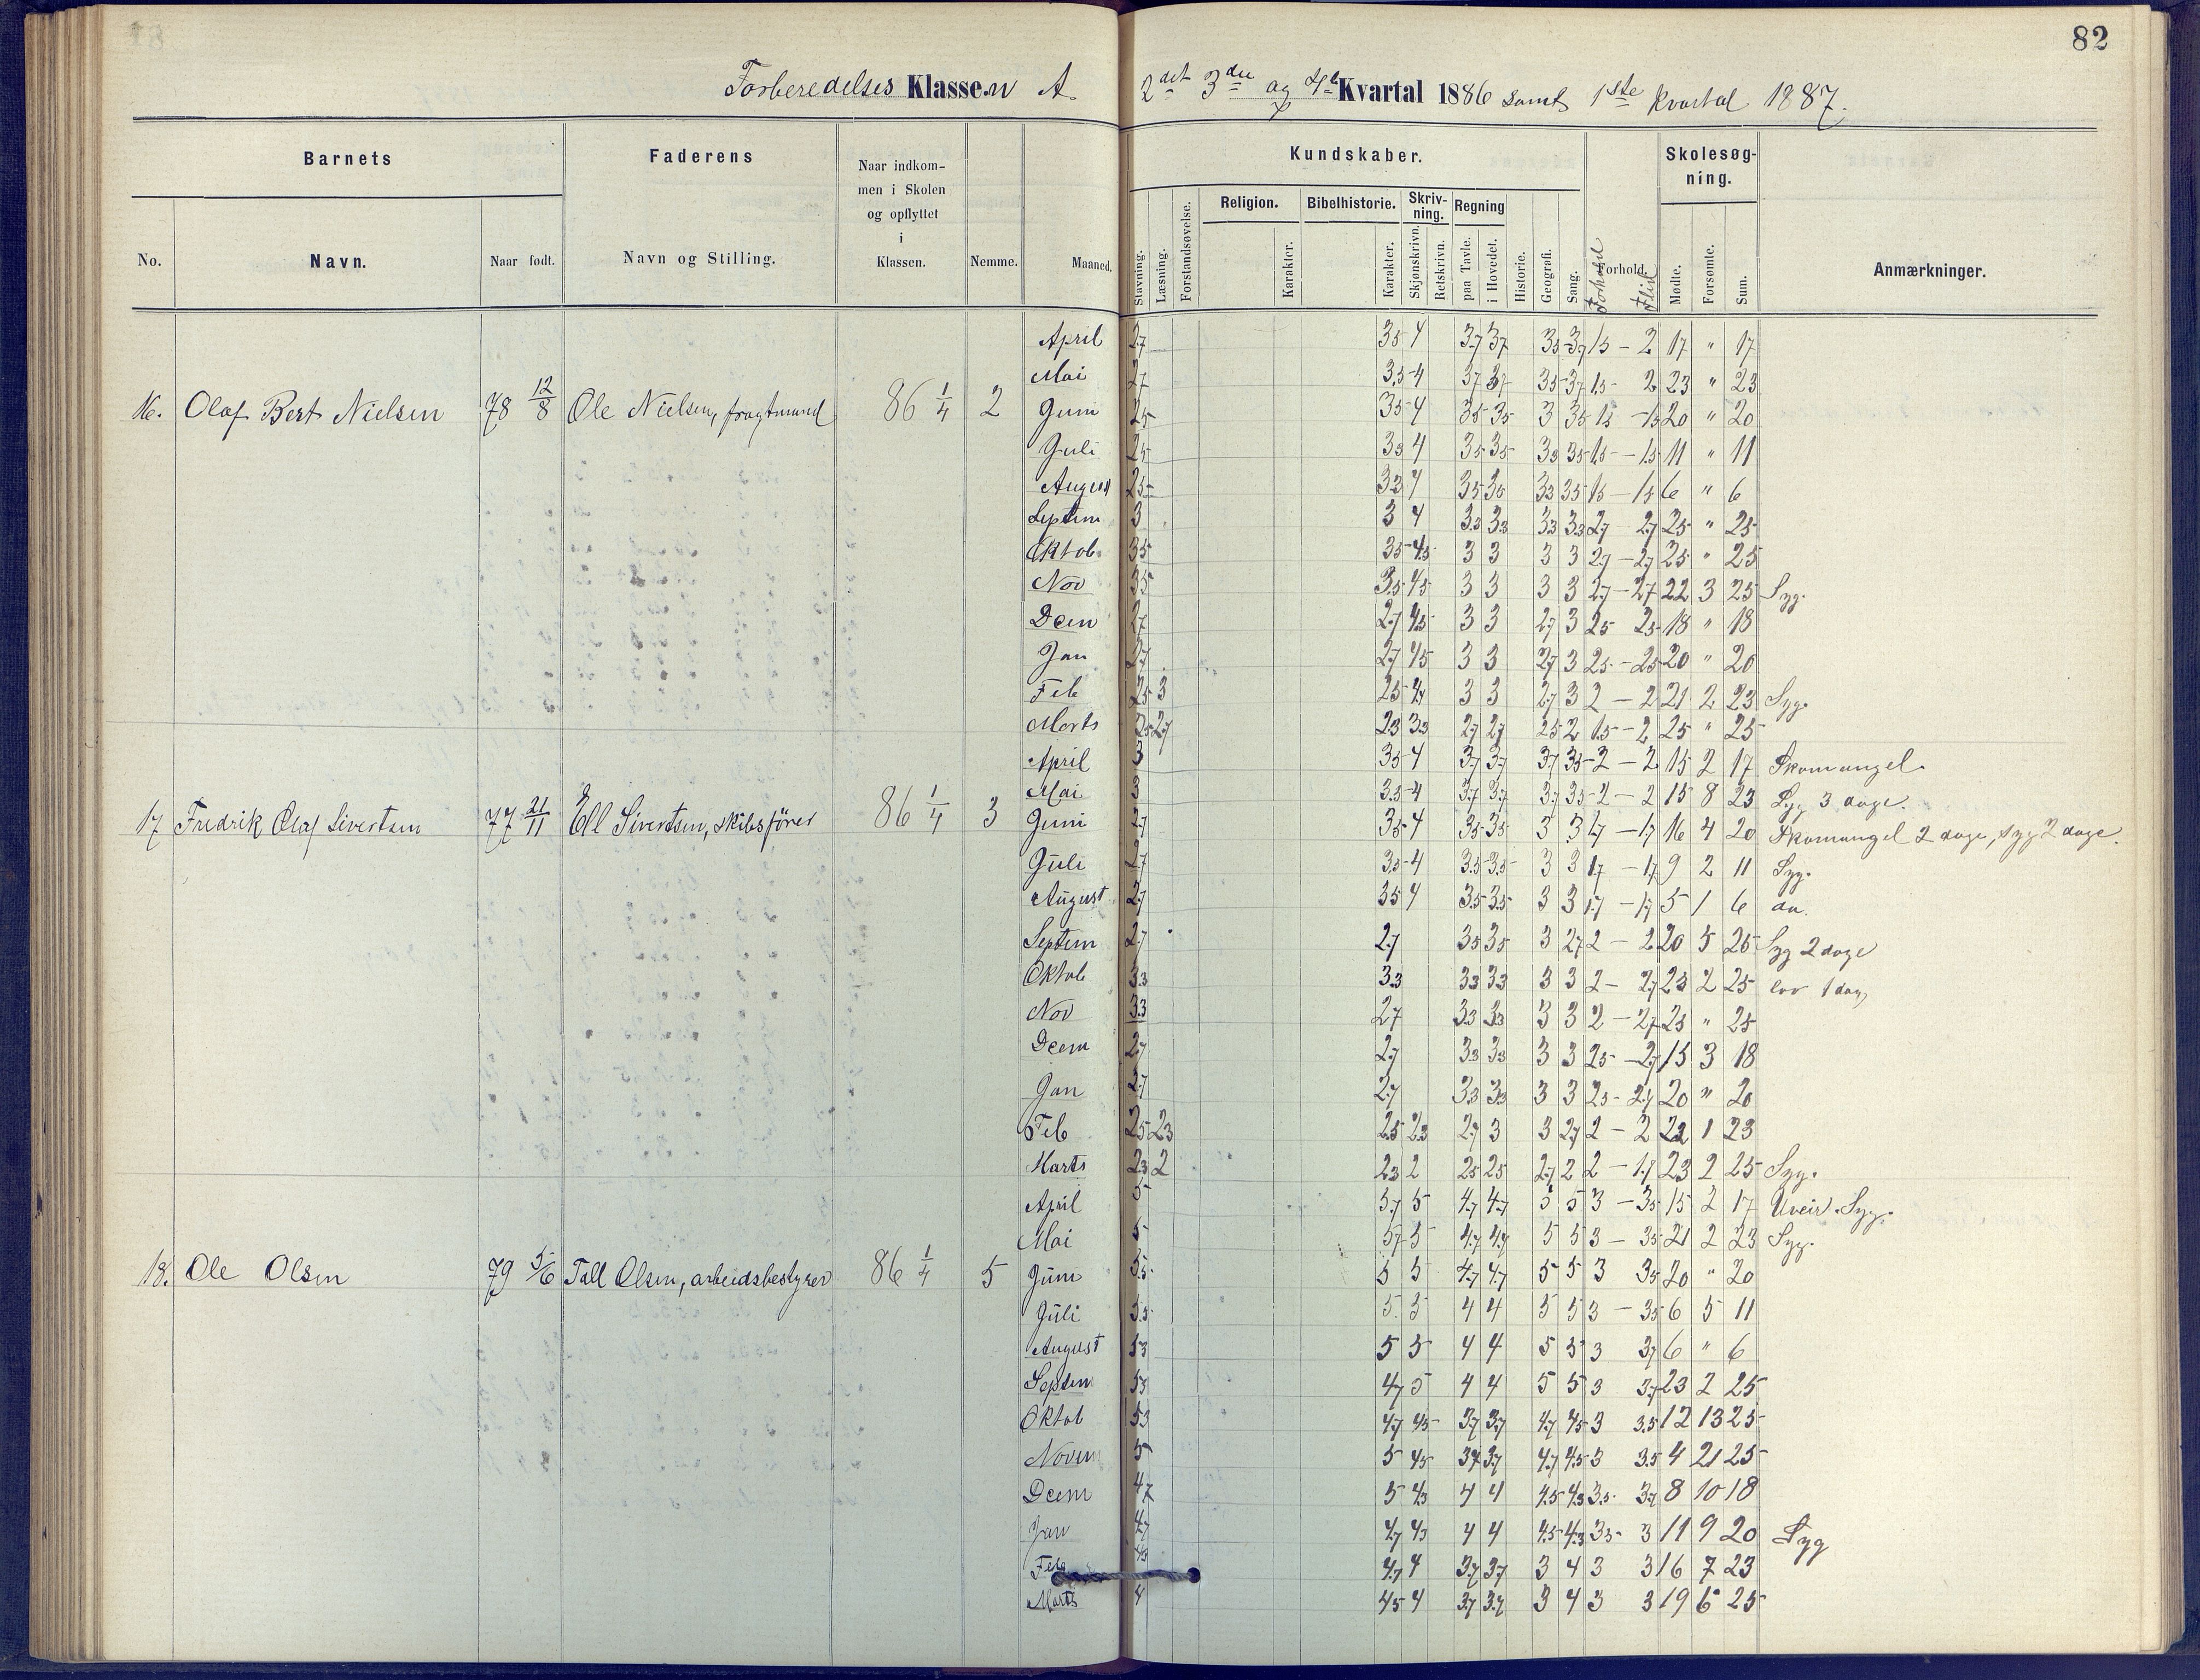 82
Forberedelses Klassen A 2det 3die og 4de Kvartal 1886 samt 1ste Kvartal 1887.
Barnets Faderens Naar indkommen i Skolen og opflyttet i Klassen. Nemme. Maaned. Kundskaber. Forhold. Skolesøgning. Anmærkninger.
No. Navn. Naar født. Navn og Stilling.
Stavning. Læsning. Forstandsøvelse. Religion. Karakter. Bibelhistorie. Karakter. Skrivning. Skjønskrivn. Retskrivn. Regning paa Tavle. i Hovedet. Historie. Geografi. Sang. Forhold Flid Mødte. Forsømte. Sum.
April 2.7 3.5 4 3.7 3.7 3.5 3.7 1.5 – 2 17 " 17
Mai 2.7 3.5 4 3.7 3.7 3.5 3.7 1.5 - 2 23 " 23
16. Olaf Bert Nielsen 78 12/8 Ole Nielsen, fragtmand 86 1/4 2 Juni 2.5 3.5 4 3.5 3.5 3 3.5 1.5 – 1.5 20 " 20
Juli 2.5 3.3 4 3.5 3.5 3.3 3.5 1.5 – 1.5 11 " 11
August 2.5 3.3 4 3.5 3.5 3.3 3.5 1.5 – 1.5 6 " 6
Septem 3 3 4 3.3 3.3 3.3 3.3 2.7 2.7 25 " 25
Oktob. 3.5 3.5 4.5 3 3 3 3 2.7 – 2.7 25 " 25
Nov 3.5 3.5 4.5 3 3 3 3 2.7 – 2.7 22 3 25 Syg.
Dcem 2.7 2.7 4.5 3 3 2.7 3 2.5 2.5 18 " 18
Jan 2.7 2.7 4.5 3 3 2.7 3 2.5 – 2.5 20 " 20
Feb 2.5 3 2.5 4 3 3 2.7 3 2 – 2 21 2 23 Syg.
Marts 2.5 2.7 2.3 3.3 2.7 2.7 2.5 2 1.5 – 2 25 " 25
April 3 3.5 4 3.7 3.7 3.7 3.5 2 – 2 15 2 17 Skomangel.
Mai 3 3.5 4 3.7 3.7 3.7 3.5 2 – 2 15 8 23 Syg 3 dage.
17 Fredrik Olaf Sivertsen 77 21/11 Ell Sivertsen, skibsfører 86 1/4 3 Juni 2.7 3.5 4 3.5 3.5 3 3 1.7 – 1.7 16 4 20 Skomangel 2 dage, syg 2 dage.
Juli 2.7 3.5 4 3.5 3.5 3 3 1.7 – 1.7 9 2 11 Syg.
August 2.7 3.5 4 3.5 3.5 3 3 1.7 – 1.7 5 1 6 do.
Septem 2.7 2.7 3.5 3.5 3 2.7 2 – 2 20 5 25 Syg 2 dage
Oktob 3.3 3.3 3.3 3.3 3 3 2 – 2.7 23 2 25 lov 1 dag
Nov 3.3 2.7 3.3 3.3 3 3 2 – 2.7 25 " 25
Dcem 2.7 2.7 3.3 3.3 3 3 2.5 – 2.7 15 3 18
Jan 2.7 2.7 3.3 3.3 3 3 2.5 - 2.7 20 " 20
Feb 2.5 2.3 2.5 2.3 2.7 3 3 2.7 2 – 2 22 1 23
Marts 2.3 2 2.3 2 2.5 2.5 2.7 2 2 – 1.7 23 2 25 Syg.
April 5 5.7 5 4.7 4.7 5 5 3 – 3.5 15 2 17 Uveir. Syg.
Mai 5 5.7 5 4.7 4.7 5 5 3 – 3.5 21 2 23 Syg.
18. Ole Olsen 79 5/6 Tall Olsen, arbeidsbestyrer 86 1/4 5 Juni 5.5 5 5 4.7 4.7 5 5 3 3.5 20 " 20
Juli 5.5 5 5 4 4 5 5 3 – 3.5 6 5 11
August 5.3 5 5 4 4 5 5 3 3.7 6 " 6
Septem 5.3 4.7 5 4 4 5 5 3 3.7 23 2 25
Oktob 5.3 4.7 4.5 3.7 3.7 4.7 4.5 3 3.5 12 13 25
Novem 5 5 4.5 3.7 3.7 4.7 4.5 3 3.5 4 21 25
Dcem 4.7 5 4.3 4 4 4.5 4.3 3.5 3.7 8 10 18
Jan 4.7 4.7 4.3 4 4 4.5 4.3 3.5 3 11 9 20 Syg
Feb 4.7 4 3.7 3.7 3 4 3 3 16 7 23
Marts 4 4.5 4 3.7 3.7 3 4 3 3 19 6 25